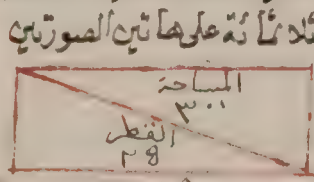 ثلاثمائة على هاتين الصورتين
المساحة
٣٠٠
القطر
٢٥